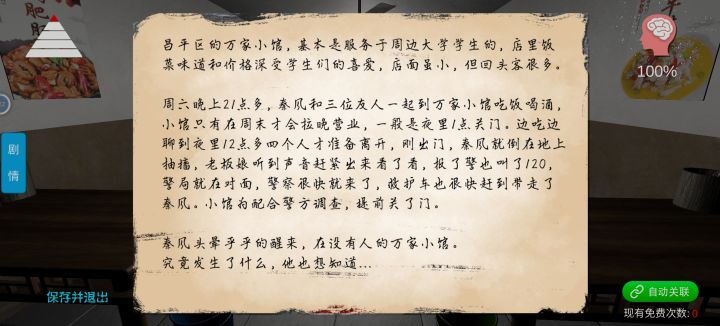 昌平区的万家小馆，基本是服务于周边大学学生的，店里饭
菜味道和价格深受学生们的喜爱，店面虽小，但回头客很多。
周六晚上21点多，秦风和三位友人一起到万家小馆吃饭喝酒，
小馆只有在周末才会拉晚营业，一般是夜里1点关门。边吃边
聊到夜里12点多四个人才准备离开，刚出门，秦风就倒在地上
抽搐，老板娘听到声音赶紧出来看了看，报了警也叫了120，
警局就在对面，警察很快就来了，救护车也很快赶到带走了
秦风。小馆为配合警方调查，提前关了门。
秦风头晕乎乎的醒来，在没有人的万家小馆。
究竟发生了什么，他也想知道...
100%
剧
情
保存并退出
自动关联
现有免费次数: 0